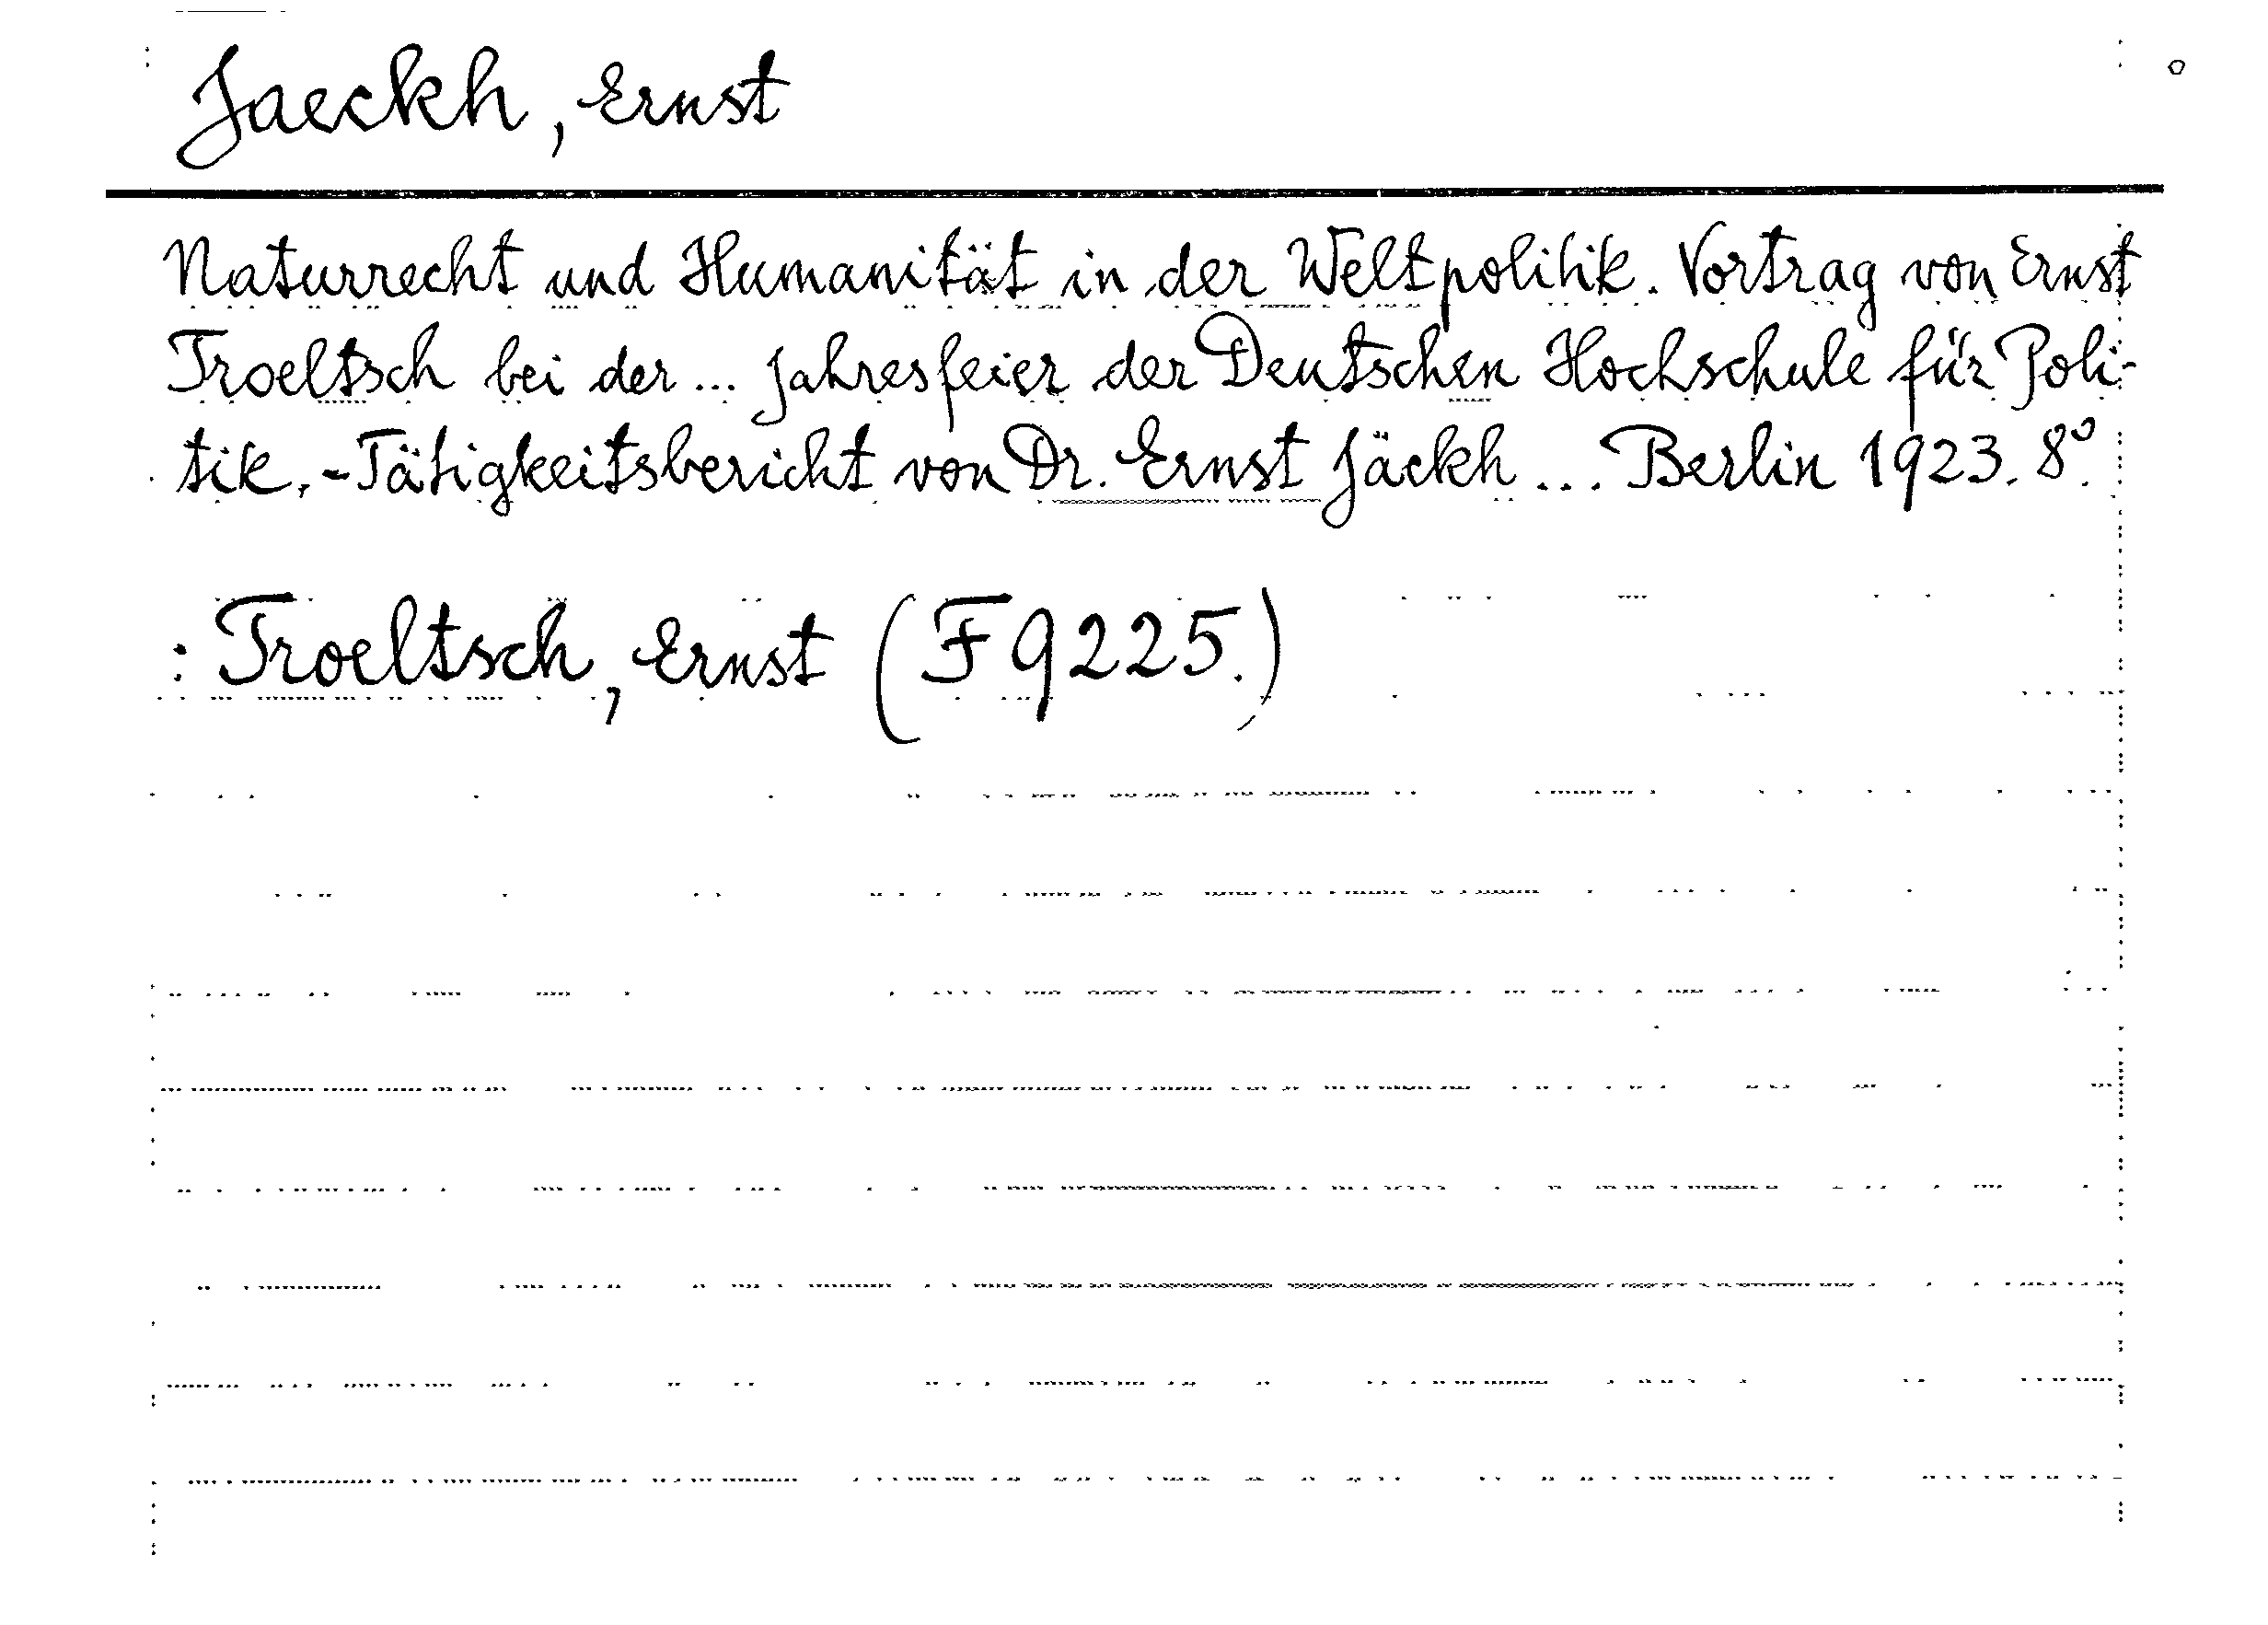 Jaeckh, Ernst
Naturrecht und Humanität in der Weltpolitik. Vortrag von Ernst
Troeltsch bei der ... Jahresfeier der Deutschen Hochschule für Poli-
tik. - Tätigkeitsbericht von Dr. Ernst Jäckh ... Berlin 1923. 8°.
: Troeltsch, Ernst (F 9225.)